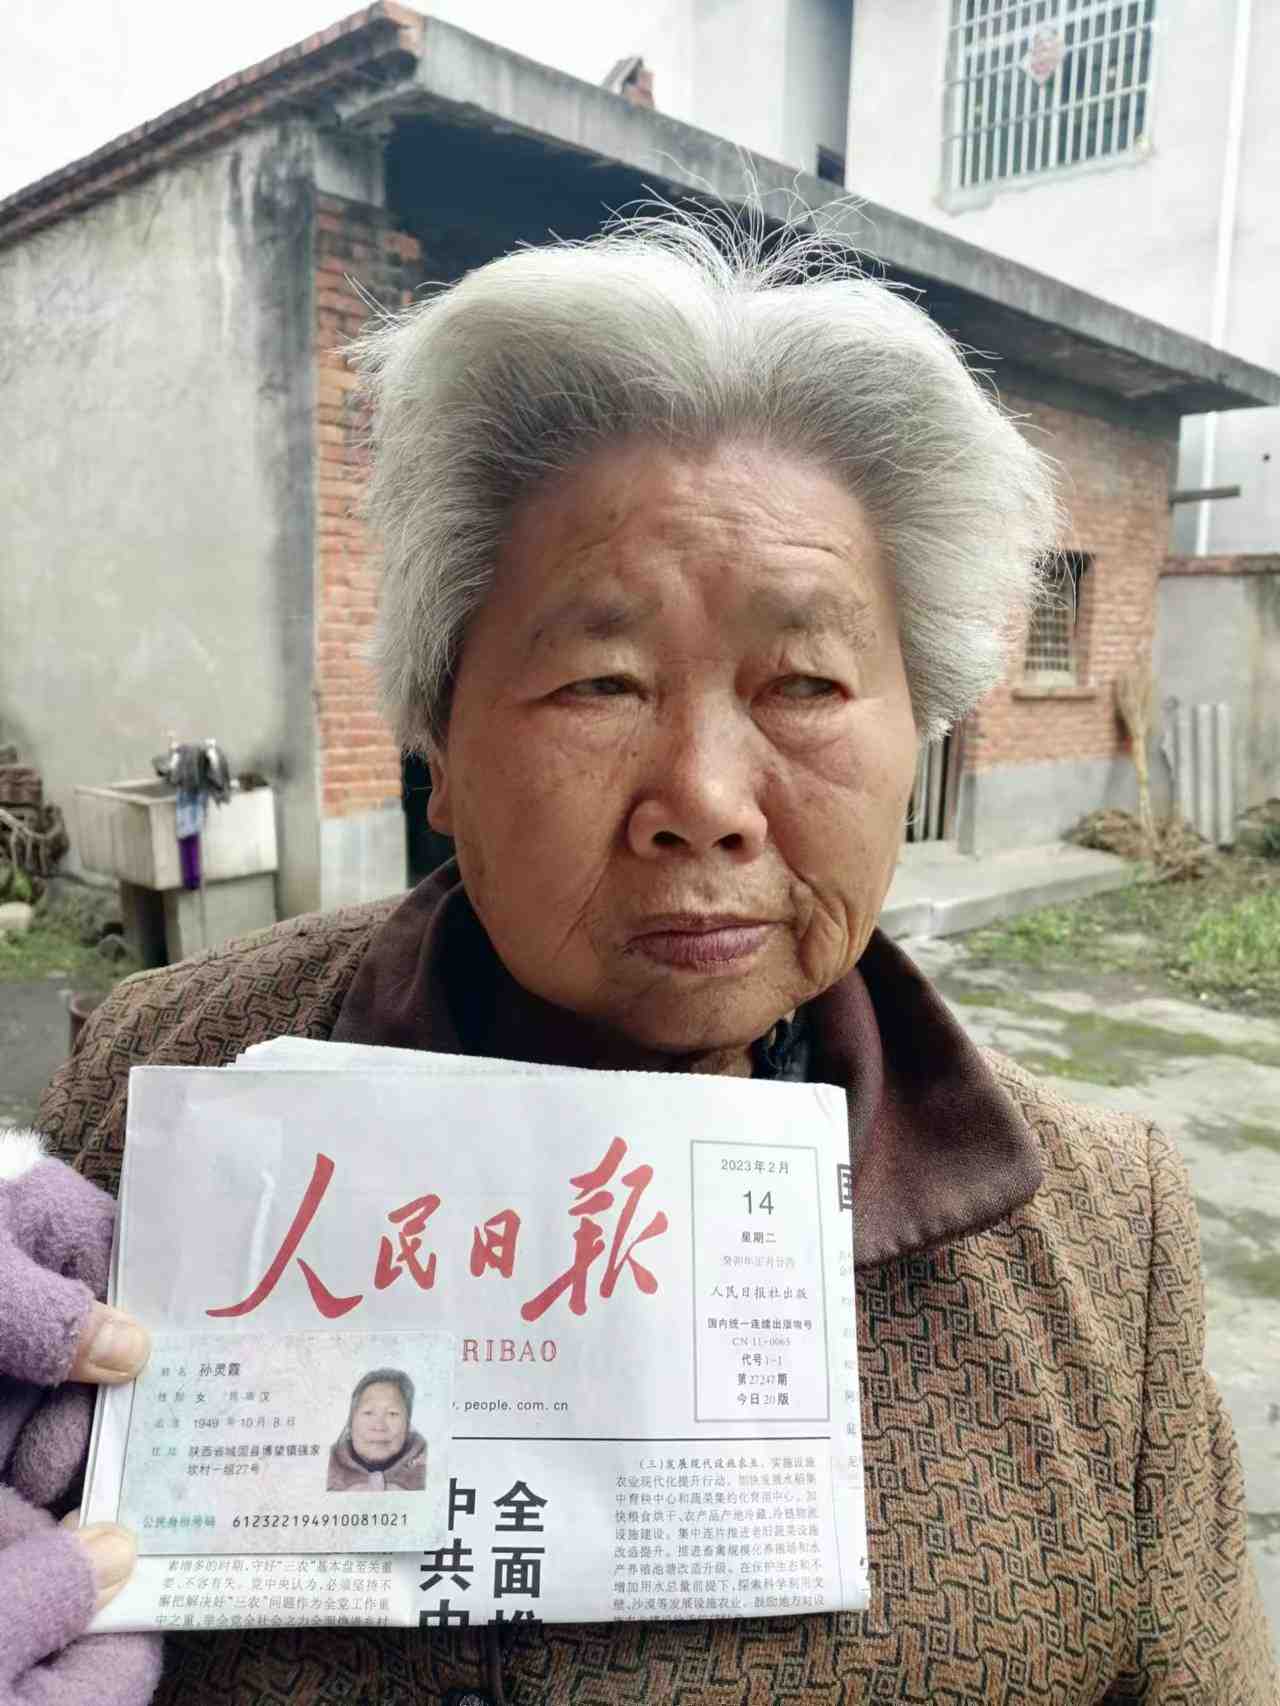 人民日报
RIBAO
people.com.cn
2023年2月
14
星期二
人民日报社出版
国内统一连续出版物号
CN 11-0065
代号1-1
第27247期
今日20版
姓名 孙灵霞
性别 女 民族 汉
出生 1949 年 10 月 8 日
住址 陕西省城固县博望镇强家
坎村一组27号
公民身份号码 612322194910081021
中共中
全面推
(三)发展现代设施农业。实施设施
农业现代化提升行动。加快发展水稻集
中育秧中心和蔬菜集约化育苗中心。加
快粮食烘干、农产品产地冷藏、冷链物流
设施建设。集中连片推进老旧蔬菜设施
改造提升。推进畜禽规模化养殖场和水
产养殖池塘改造升级。在保护生态和不
增加用水总量前提下,探索科学利用戈
壁、沙漠等发展设施农业。鼓励地方对设
素增多的时期,守好“三农”基本盘至关重
要、不容有失。党中央认为,必须坚持不
懈把解决好“三农”问题作为全党工作重
中之重,举全党全社会之力全面推进乡村